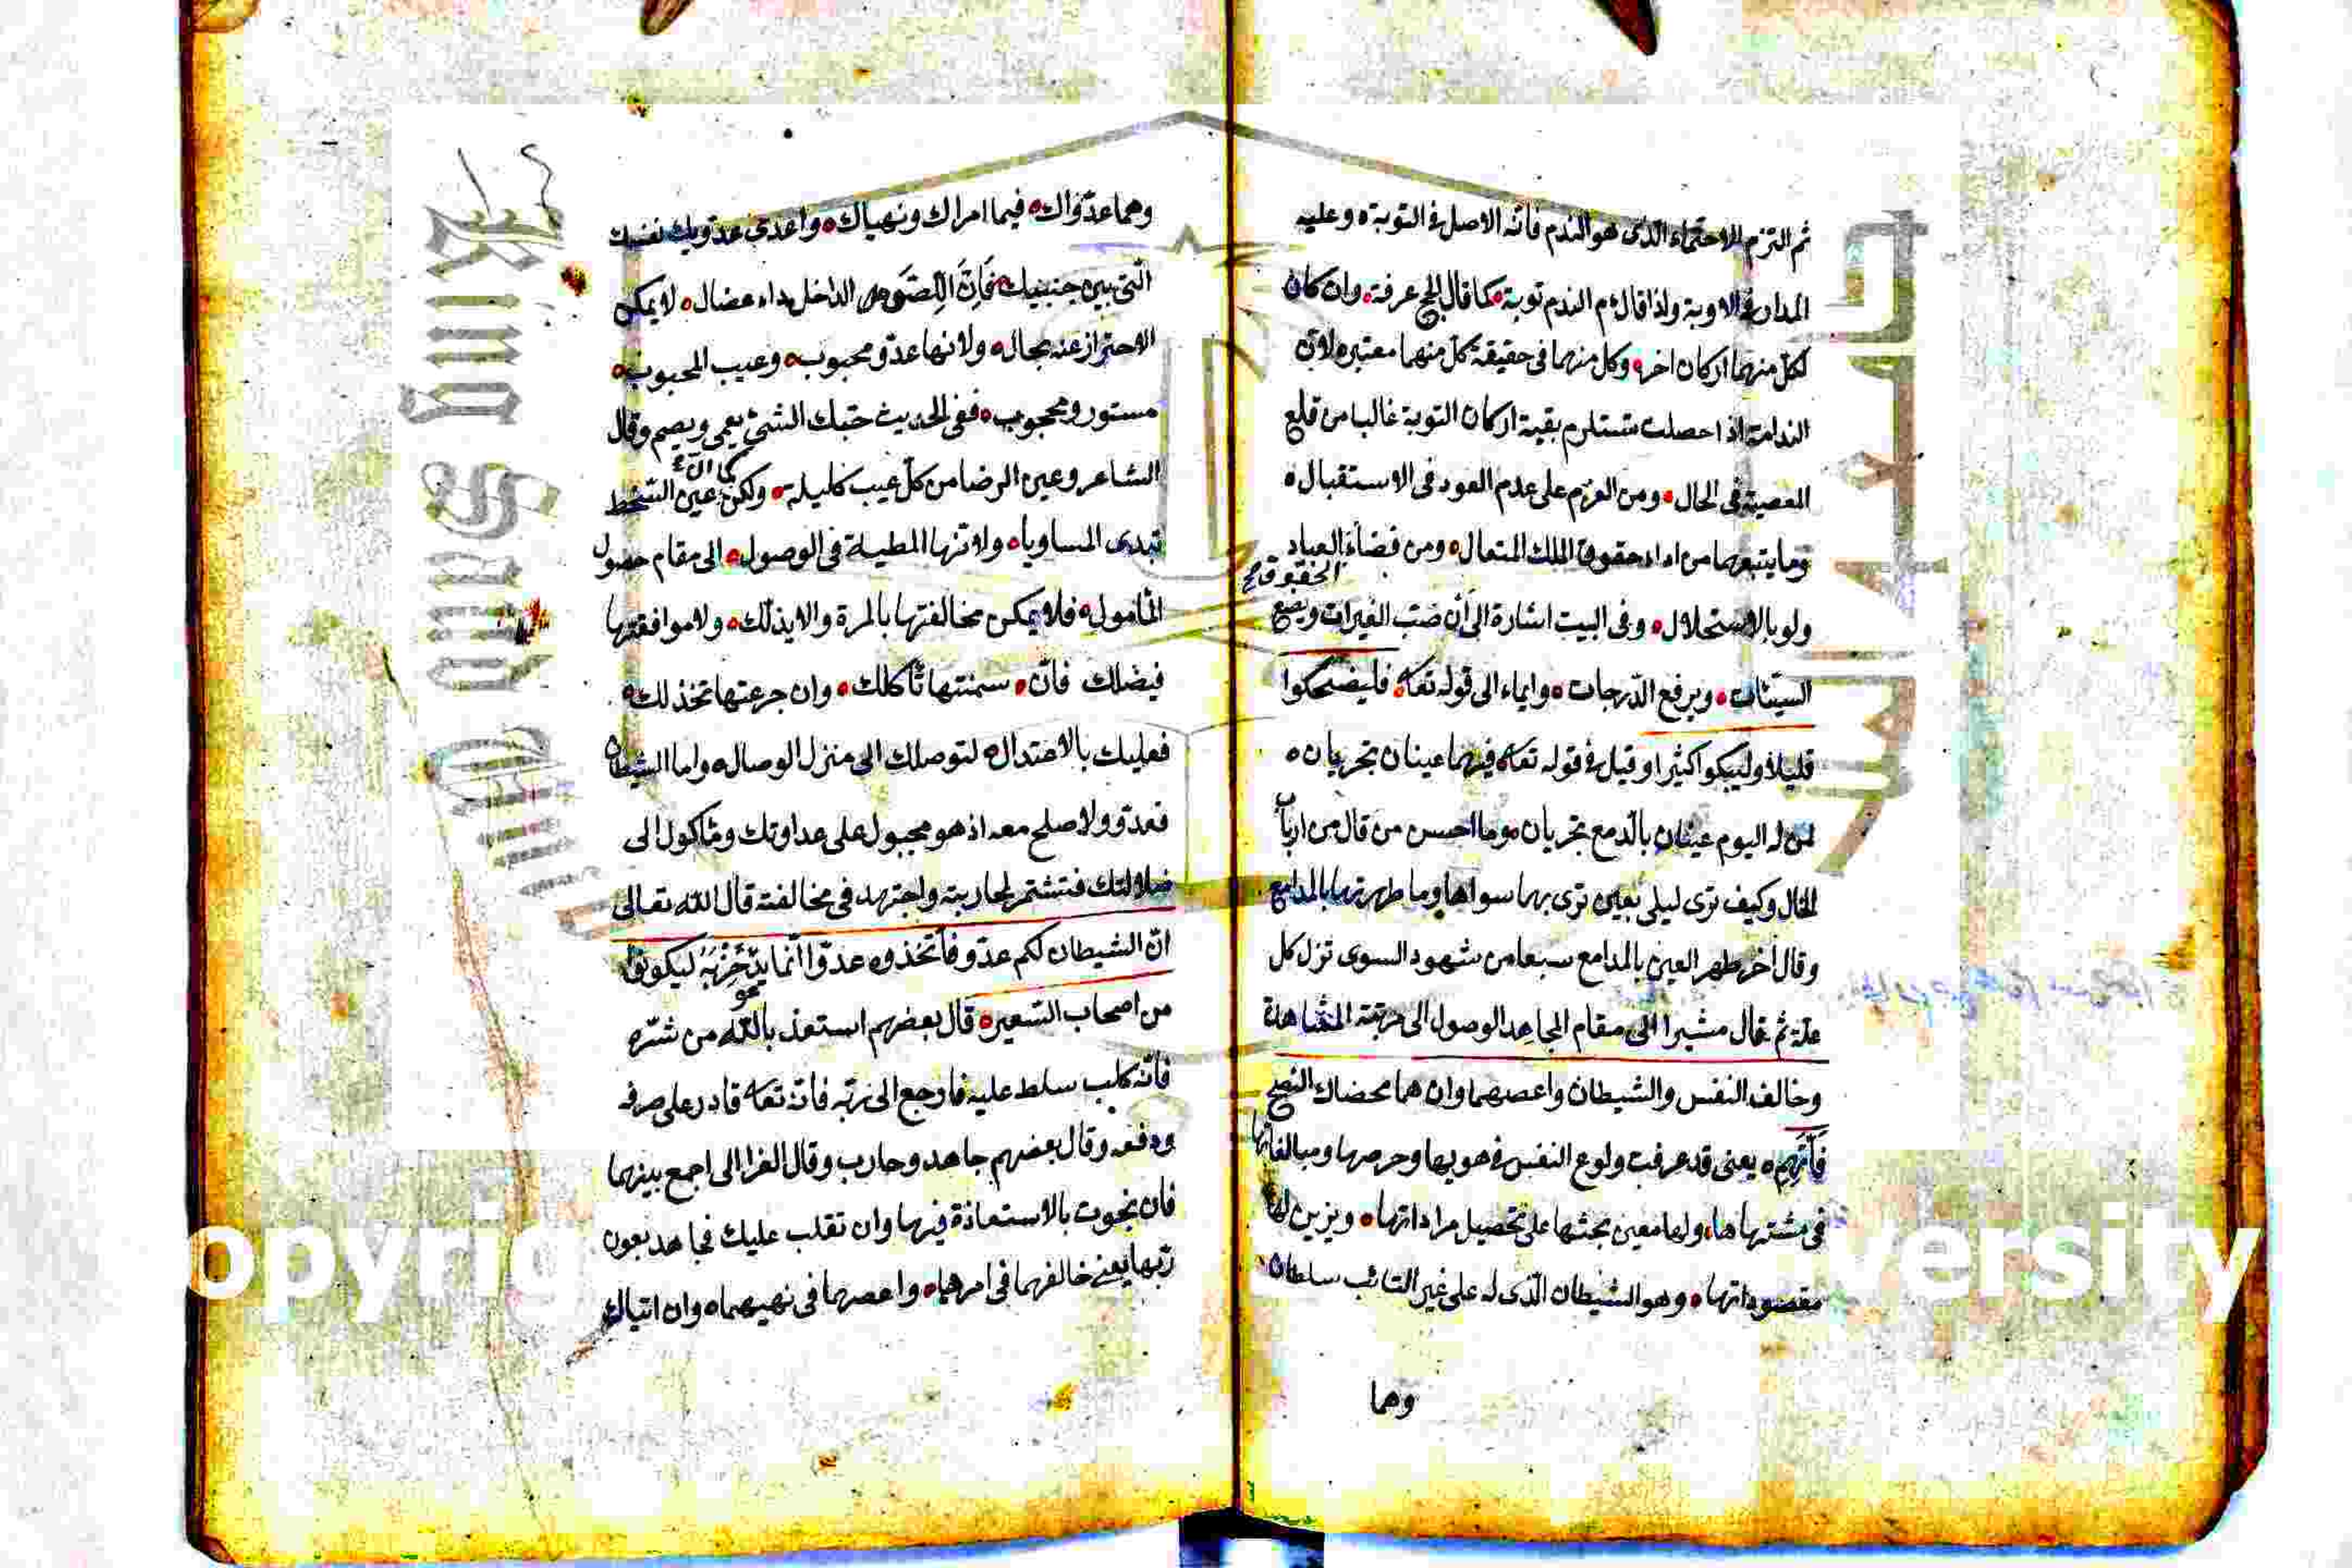 ثم التزم الاحتماء الذى هو الندم فانه الاصل فى التوبة وعليه
المدار فى الاوبة ولذا قال م الندم توبة كما قال الحج عرفة وان كان
لكل منهما اركان اخر وكل منهما فى حقيقة كل منهما معتبره لان
الندامة اذا حصلت تستلزم بقية اركان التوبة غالبا من قلع
المعصية فى الحال ومن العزم على عدم العود فى الاستقبال
وما يتبعهما من اداء حقوق الملك المتعال ومن قضاء العباد
الحقوق صح
ولو بالاستحلال وفى البيت اشارة الى ان صب العبرات
السيئات ويرفع الدرجات وايماء الى قوله تعا فليضحكوا
قليلا وليبكوا كثيرا وقيل فى قوله تعا فيهما عينان تجريان
لمن له اليوم عينان بالدمع تجريان وما احسن من قال من ارباب
الحال وكيف ترى ليلى بعين ترى بها سواها وما طهرتها بالمدامع
وقال اخر طهر العين بالمدامع سبعا من شهود السوى تزل كل
علة ثم قال مشيرا الى مقام المجاهد الوصول الى مرتبة المشاهدة
وخالف النفس والشيطان واعصهما وان هما محضاك النصح
فاتهم يعنى قد عرفت ولوع النفس فى هويها وحرصها ومبالغاتها
فى مشتهاها ولها معين يحثها على تحصيل مراداتها ويزين لها
مقصوداتها وهو الشيطان الذى له على غير التائب سلطان
وهما
وهما عدواك فيما امراك ونهياك واعدى عدويك نفسك
التى بين جنبيك فان اللص الداخل داء عضال لا يمكن
الاحتراز عنه بحال ولانها عدو محبوب وعيب المحبوب
مستور ومحجوب ففى الحديث حبك الشئ يعمى ويصم وقال
الشاعر وعين الرضا من كل عيب كليلة ولكن عين السخط
تبدى المساويا ولانها المطية فى الوصول الى مقام حصول
المأمول فلا يمكن مخالفتها بالمرة والا يذلك ولا موافقتها
فيضلك فان سمنتها تأكلك وان جرعتها تخذلك
فعليك بالاعتدال لتوصلك الى منزل الوصال واما الشيطان
فعدو ولا صلح معه اذ هو مجبول على عداوتك وموكول الى
ضلالتك فتشتمر لمحاربته واجتهد فى مخالفته قال الله تعالى
ان الشيطان لكم عدو فاتخذوه عدوا انما يدعو حزبه ليكونوا
من اصحاب السعير قال بعضهم استعذ بالله من شره
فانه كلب سلط عليه فارجع الى ربه فانه تعا قادر على صرفه
ودفعه وقال بعضهم جاهد وحارب وقال الغزالى اجمع بينهما
فان نجوت بالاستعاذة فبها وان تغلب عليك فجاهد بعون
ربها يعنى خالفهما فى امرهما واعصهما فى نهيهما وان اتياك